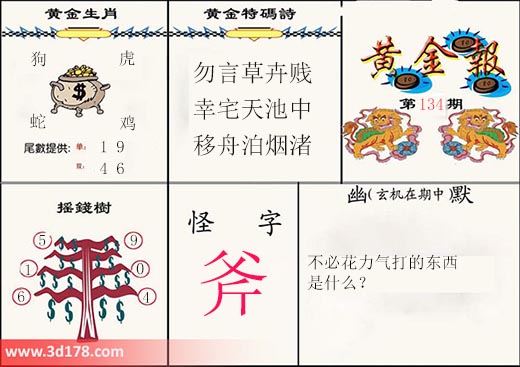 黄金生肖
狗 虎
$
蛇 鸡
尾數提供: 单: 1 9
双: 4 6
黄金特碼詩
勿言草卉贱
幸宅天池中
移舟泊烟渚
黄金報
第134期
摇錢樹
5 9
1 0
6 4
怪 字
斧
幽(玄机在期中)默
不必花力气打的东西
是什么?
www.3d178.com